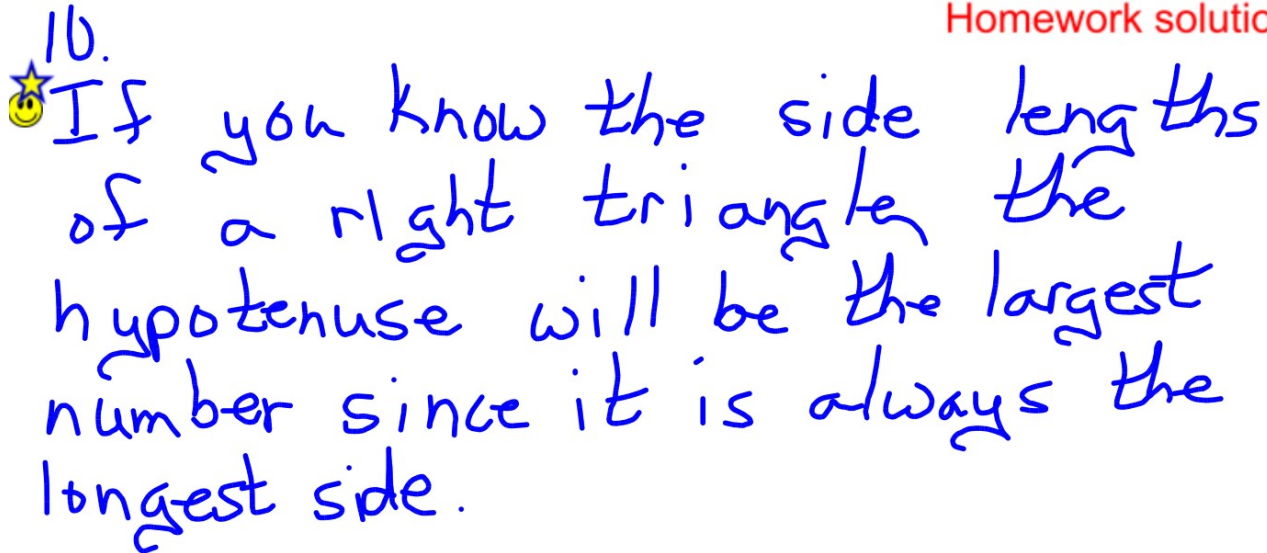 Homework solutio
10.
If you know the side lengths
of a right triangle, the
hypotenuse will be the largest
number since it is always the
longest side.